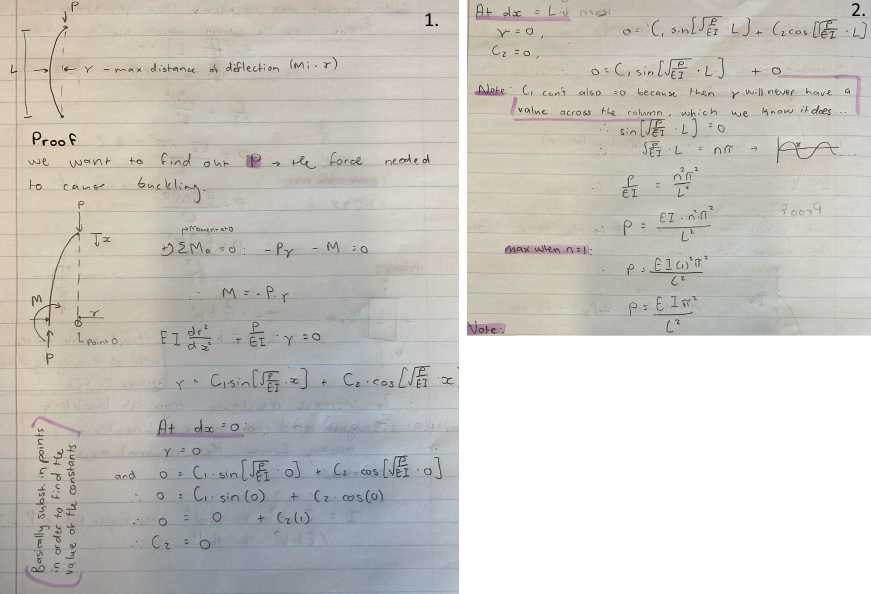 1.
P
L
r - max distance of deflection (Mi-r)
Proof
we want to find out P → the force needed
to cause buckling.
P
x
M
r
Point O
P
+↺ ΣM₀ = 0: -Pr - M = 0
∴ M = -P.r
EI dr²/dx² + P/EI · r = 0
r = C₁sin[√P/EI · x] + C₂.cos[√P/EI · x
At dx = 0
r = 0
and 0 = C₁.sin[√P/EI · 0] + C₂.cos[√P/EI · 0]
∴ 0 = C₁.sin(0) + C₂.cos(0)
∴ 0 = 0 + C₂(1)
∴ C₂ = 0
Basically subst. in points
in order to find the
value of the constants
2.
At dx = L
r = 0, 0 = C₁ sin[√P/EI · L] + C₂cos[√P/EI · L]
C₂ = 0,
∴ 0 = C₁sin[√P/EI · L] + 0
Note: C₁ can't also =0 because then r will never have a
value across the column, which we know it does...
∴ sin[√P/EI · L] = 0
∴ √P/EI · L = nπ →
∴ P/EI = n²π²/L²
∴ P = EI·n²·π²/L²
max when n=1:
∴ P = EI(1)²π²/L²
∴ P = EIπ²/L²
Note: